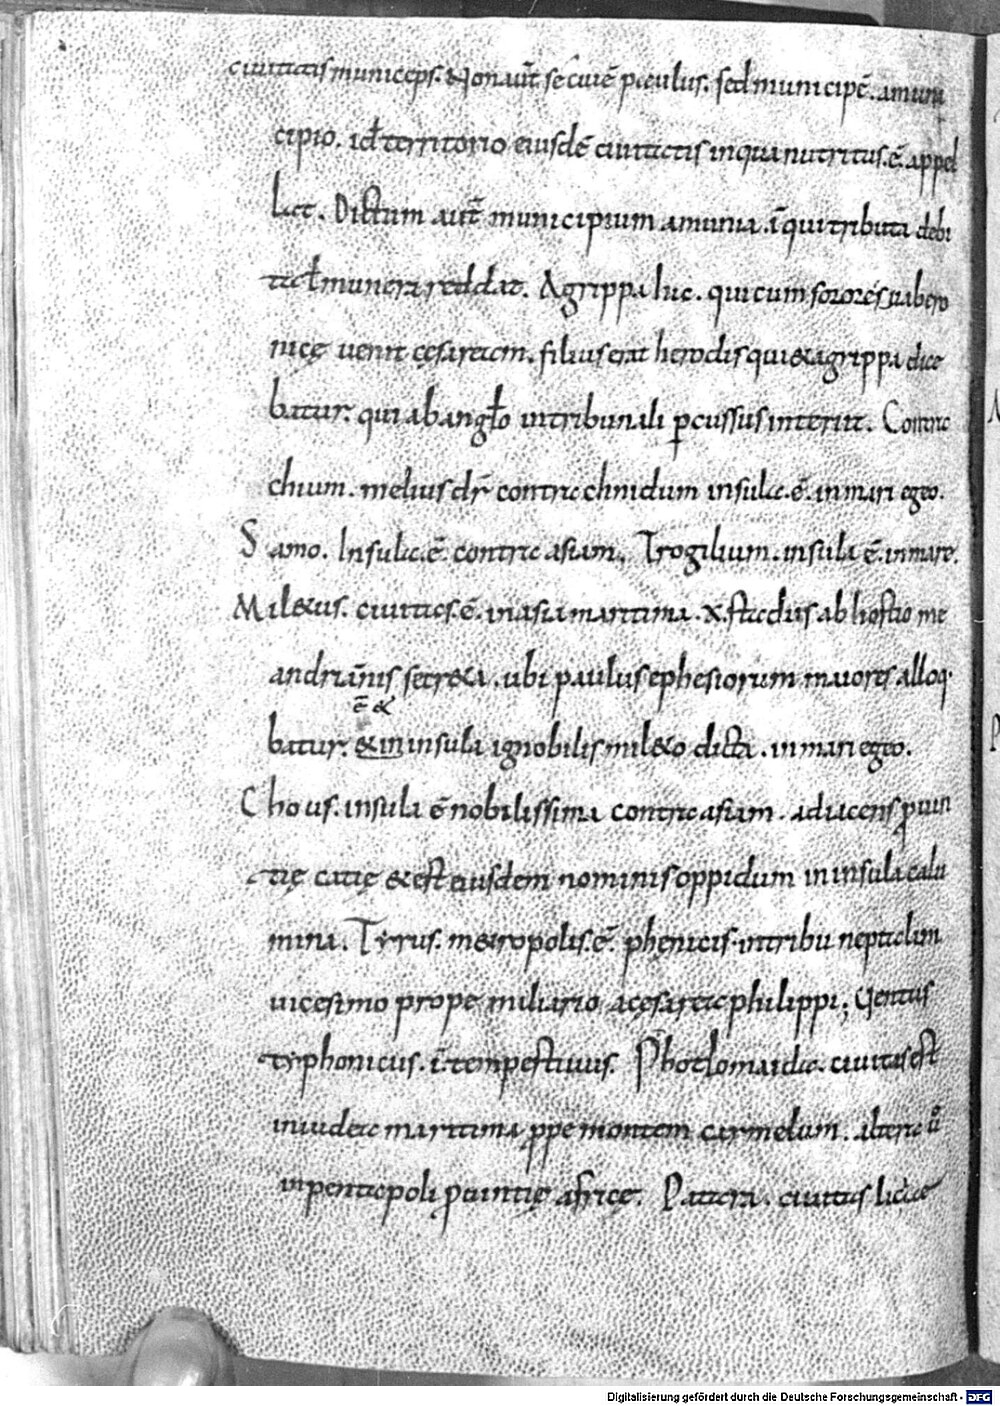 ciuitatis municeps. Non aut̄ se ciuē paulus. sed municipē. a muni
cipio. id ÷ territorio eiusdē ciuitatis in qua nutritus.ē. appel
lat. Dictum aut̄ municipium a munia .i. qui tributa debi
ta ł munera reddat. Agrippa luc. qui cum sorore sua bero
nicę uenit cęsaream. filius erat herodis qui & agrippa dice
batur. qui ab angło in tribunali ꝑcussus interiit. Contra
chium. melius dr̄ contra chnidum insula.ē. in mari egeo.
Samo. Insula.ē. contra asiam. Trogilium. insula ē. in mare.
Mil&us. ciuitas.ē. in asia maritima .x. stadiis ab hostio me
andri amnis secr&a. ubi paulus ephesiorum maiores alloq
ē &
batur. & in insula ignobilis mil&o dicta. in mari egeo.
Chous. insula ē nobilissima contra asiam. adiacens ꝓuin
tię catię & est eiusdem nominis oppidum in insula cala
mina. Tyrus. m&ropolis.ē. phęnicis. in tribu neptalim
uicesimo prope miliario a cęsarea philippi; Uentus
typhonicus .i. tempestiuus. Photlomaida. ciuitas est
in iudeae maritima ꝓpe montem carmelum. altera ū
in pentapoli ꝓuintię africę. Patara. ciuitas liciae